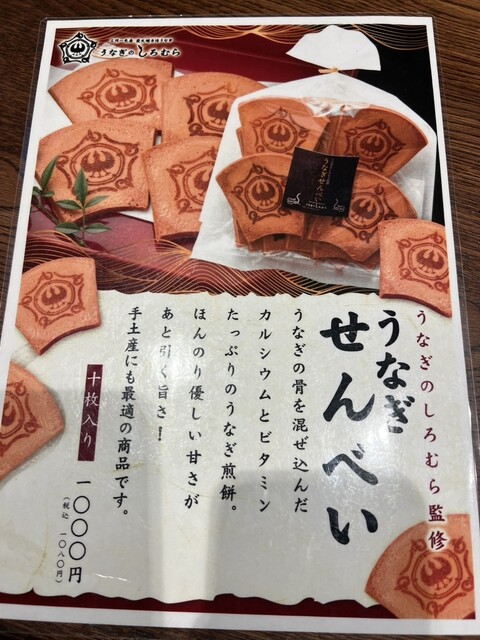 うなぎのしろむら
うなぎせんべい
うなぎのしろむら監修
うなぎ
せんべい
うなぎの骨を混ぜ込んだ
カルシウムとビタミン
たっぷりのうなぎ煎餅。
ほんのり優しい甘さが
あと引く旨さ！
手土産にも最適の商品です。
十枚入り
一〇〇〇円
（税込 一〇八〇円）